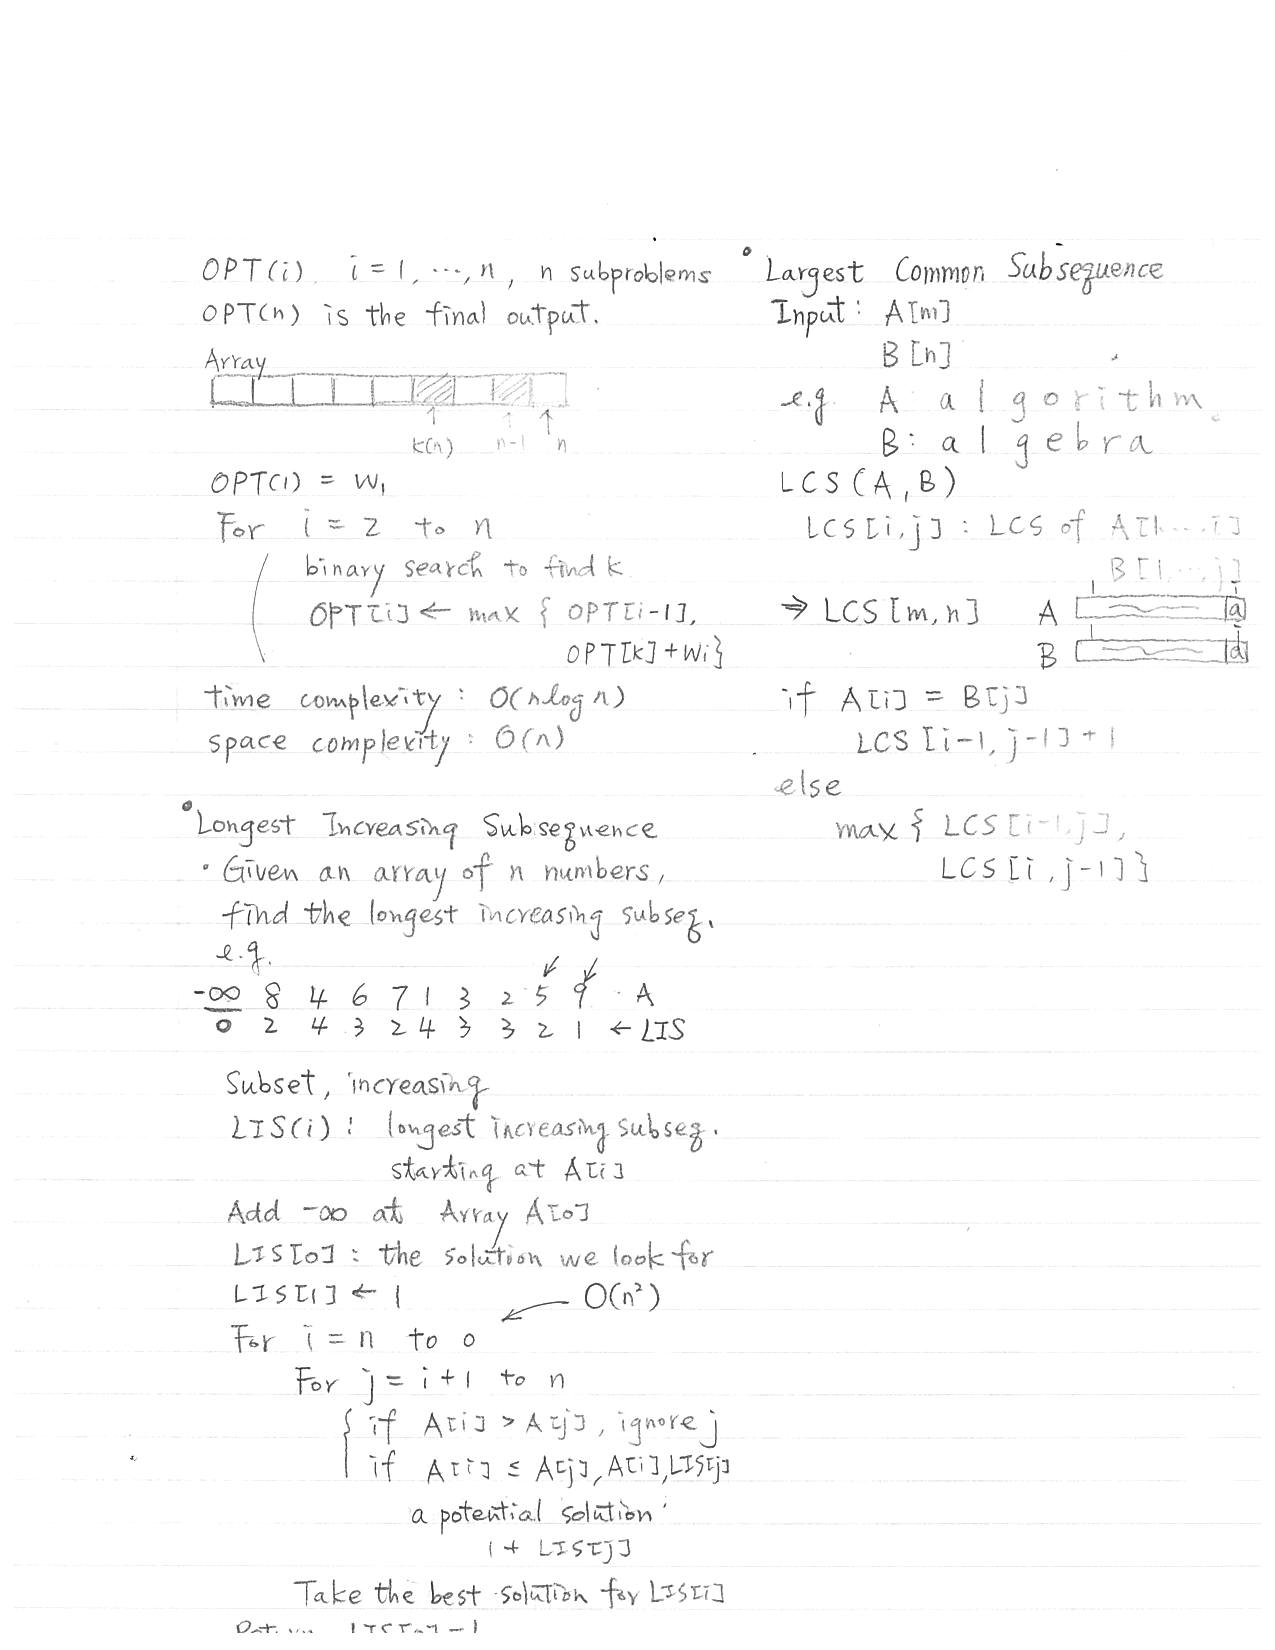 OPT(i) i = 1, ..., n, n subproblems
OPT(n) is the final output.
Array
k(n) n-1 n
OPT(1) = W₁
For i = 2 to n
binary search to find k
OPT[i] ← max { OPT[i-1],
OPT[k] + Wi}
time complexity : O(n log n)
space complexity : O(n)
• Longest Increasing Subsequence
• Given an array of n numbers,
find the longest increasing subseq.
e.g.
-∞ 8 4 6 7 1 3 2 5 9 A
0 2 4 3 2 4 3 3 2 1 ← LIS
Subset, increasing
LIS(i) : longest increasing subseq.
starting at A[i]
Add -∞ at Array A[0]
LIS[0] : the solution we look for
LIS[1] ← 1
O(n²)
For i = n to 0
For j = i+1 to n
if A[i] > A[j], ignore j
if A[i] ≤ A[j], A[i], LIS[j]
a potential solution
1 + LIS[j]
Take the best solution for LIS[i]
Return LIS[0] - 1
• Largest Common Subsequence
Input : A[m]
B[n]
e.g. A a l g o r i t h m
B: a l g e b r a
LCS (A, B)
LCS[i, j] : LCS of A[1...i]
B[1...j]
⇒ LCS[m, n]
A a
B a
if A[i] = B[j]
LCS [i-1, j-1] + 1
else
max { LCS [i-1, j],
LCS [i, j-1] }